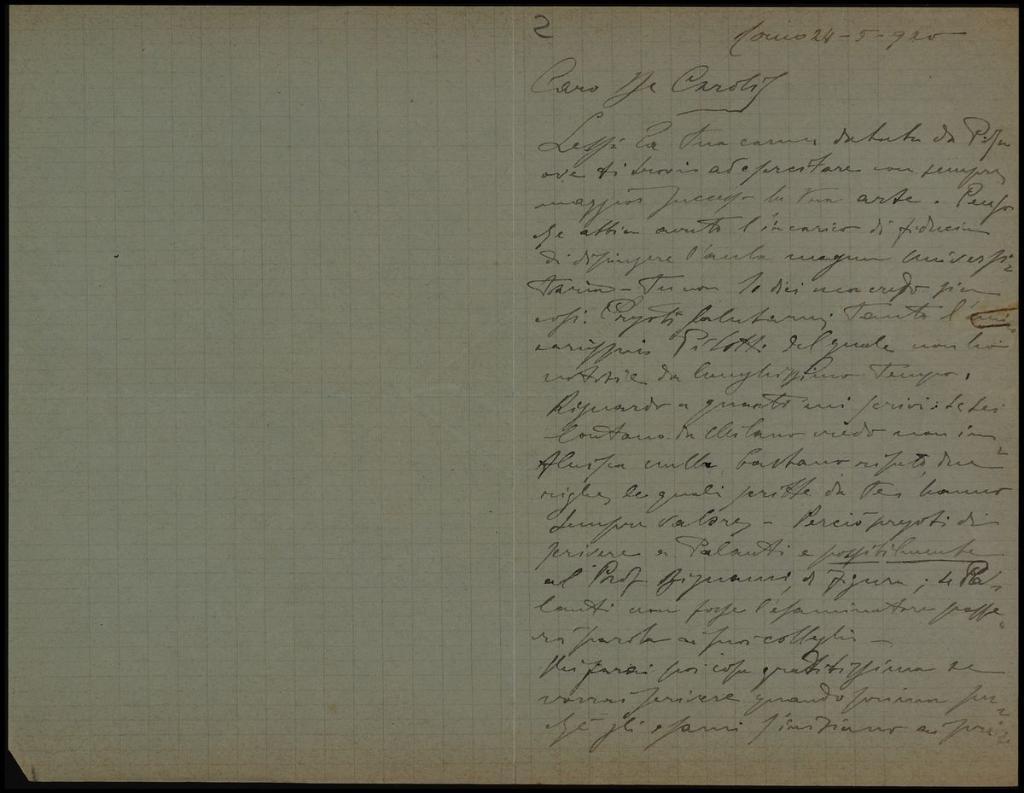 2
Como 24-5-920
Caro De Carolis
Lessi la tua carissima datata da Pisa
ove ti trovi ad esercitare con sempre
maggior successo la tua arte. Penso
che abbia avuto l'incarico di fiducia
di dipingere l'aula magna universi-
taria - Tu non lo dici ma credo sia
così. Pregoti salutarmi tanto l'
carissimo Pilotti del quale non ho
notizie da lunghissimo tempo.
Riguardo a quanto mi scrivi: se sei
lontano da Milano credo non in-
fluisca nulla, bastano due
righe, le quali scritte da te hanno
sempre valore - Perciò pregoti di
scrivere a Palanti e possibilmente
al Prof Bignami, di figura; se Pa-
lanti non fosse l'esaminatore passe-
rà parola ai suoi colleghi -
Mi farai poi cosa gratitissima se
vorrai scrivere quando prima per-
chè gli esami s'iniziano ai pri-